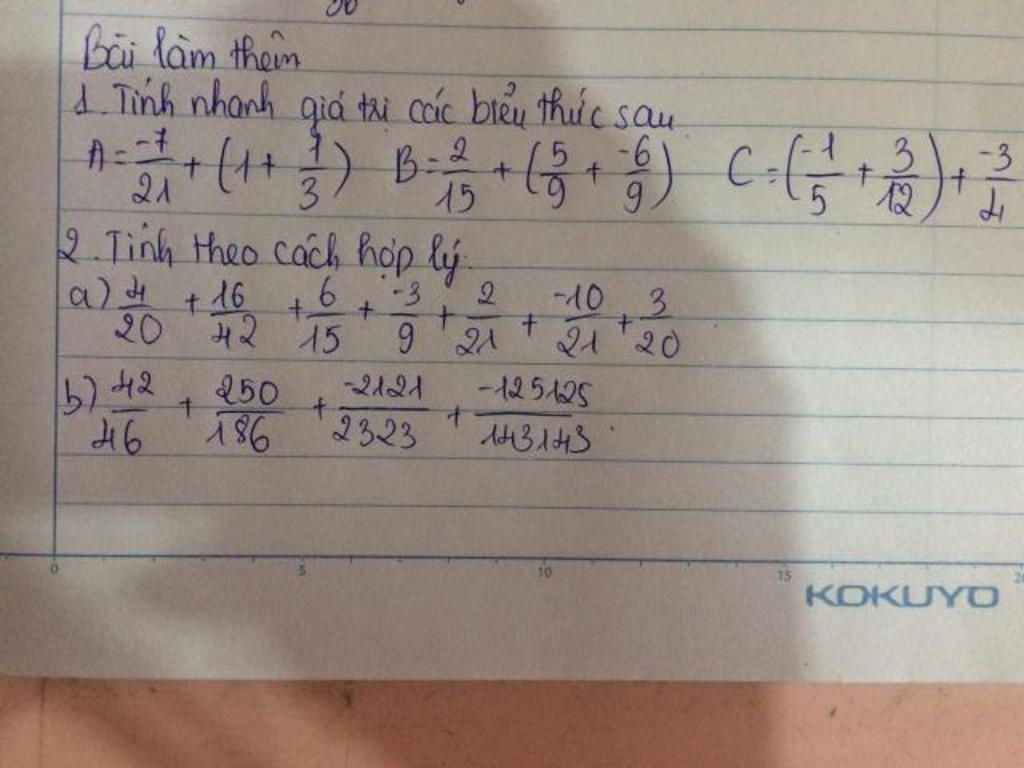 Bài làm thêm
1. Tính nhanh giá trị các biểu thức sau
A = -7/21 + (1 + 1/3) B = 2/15 + (5/9 + -6/9) C = (-1/5 + 3/12) + -3/4
2. Tính theo cách hợp lý.
a) 4/20 + 16/42 + 6/15 + -3/9 + 2/21 + -10/21 + 3/20
b) 42/46 + 250/186 + -2121/2323 + -125125/143143.
0 5 10 15
KOKUYO